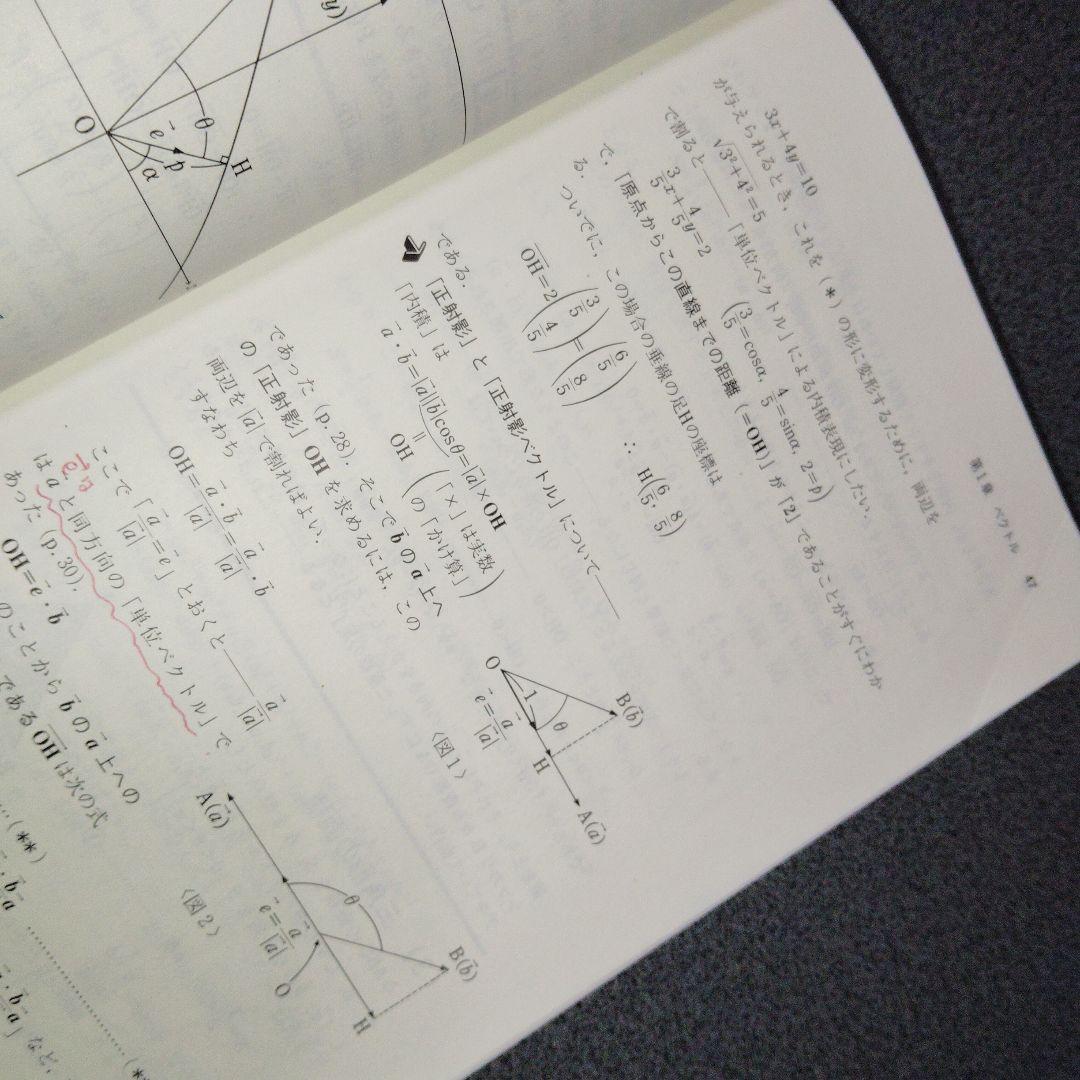 第1章 ベクトル 47
3x+4y=10
が与えられるとき，これを(*)の形に変形するために，両辺を
√3²+4²=5
で割ると――「単位ベクトル」による内積表現にしたい．
3/5x+4/5y=2 (3/5=cosα, 4/5=sinα, 2=p)
で，「原点からこの直線までの距離(=OH)」が「2」であることがすぐにわか
る．
ついでに，この場合の垂線の足Hの座標は
OH=2(3/5 4/5)=(6/5 8/5) ∴ H(6/5, 8/5)
である．
「正射影」と「正射影ベクトル」について――
「内積」は
a・b=|a||b|cosθ=|a|×OH
=
OH (「×」は実数の「かけ算」)
であった(p. 28)．そこでbのa上へ
の「正射影」OHを求めるには，この
両辺を|a|で割ればよい．
すなわち
OH=a・b/|a|=a/|a|・b
ここで「a/|a|=e」とおくと――a/|a|
eは
はaと同方向の「単位ベクトル」で
あった(p. 30)．
OH=e・b
のことからbのa上への
であるOHは次の式
(**)
など，
O
B(b)
θ
1
H
A(a)
e=a/|a|
〈図1〉
A(a)
θ
e=a/|a|
O
B(b)
H
〈図2〉
O
θ
e
p
α
H
y)